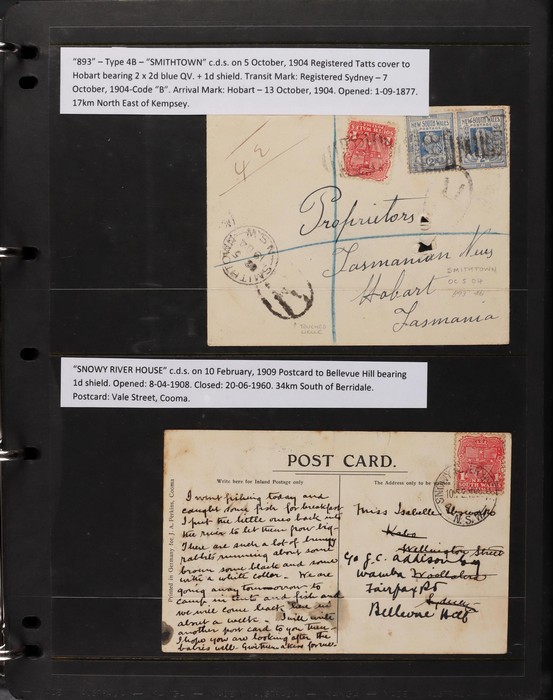 "893" – Type 4B – "SMITHTOWN" c.d.s. on 5 October, 1904 Registered Tatts cover to
Hobart bearing 2 x 2d blue QV. + 1d shield. Transit Mark: Registered Sydney – 7
October, 1904-Code "B". Arrival Mark: Hobart – 13 October, 1904. Opened: 1-09-1877.
17km North East of Kempsey.
NEW SOUTH WALES
NEW SOUTH WALES
Proprietors
Tasmanian News
Hobart
Tasmania
SMITHTOWN
N.S.W
SMITHTOWN
OC 5 04
"SNOWY RIVER HOUSE" c.d.s. on 10 February, 1909 Postcard to Bellevue Hill bearing
1d shield. Opened: 8-04-1908. Closed: 20-06-1960. 34km South of Berridale.
Postcard: Vale Street, Cooma.
POST CARD.
Write here for Inland Postage only
The Address only to be
Printed in Germany for J. A. Perkins, Cooma
I went fishing today and
caught some fish for breakfast
I put the little ones back into
the river to let them grow big
There are such a lot of bunny
rabbits running about some
brown some black and some
with a white collar. We are
going away tomorrow to
camp in tents and fish and
we will come back here in
about a week. I will write
another post card to you then
I hope you are looking after the
babies well.
Miss Isabelle
Wellington Street
C/o J.C. Addison Esq
Wamba Woollahra
Fairfax Rd
Sydney
Bellevue Hill
SNOWY
N.S.W